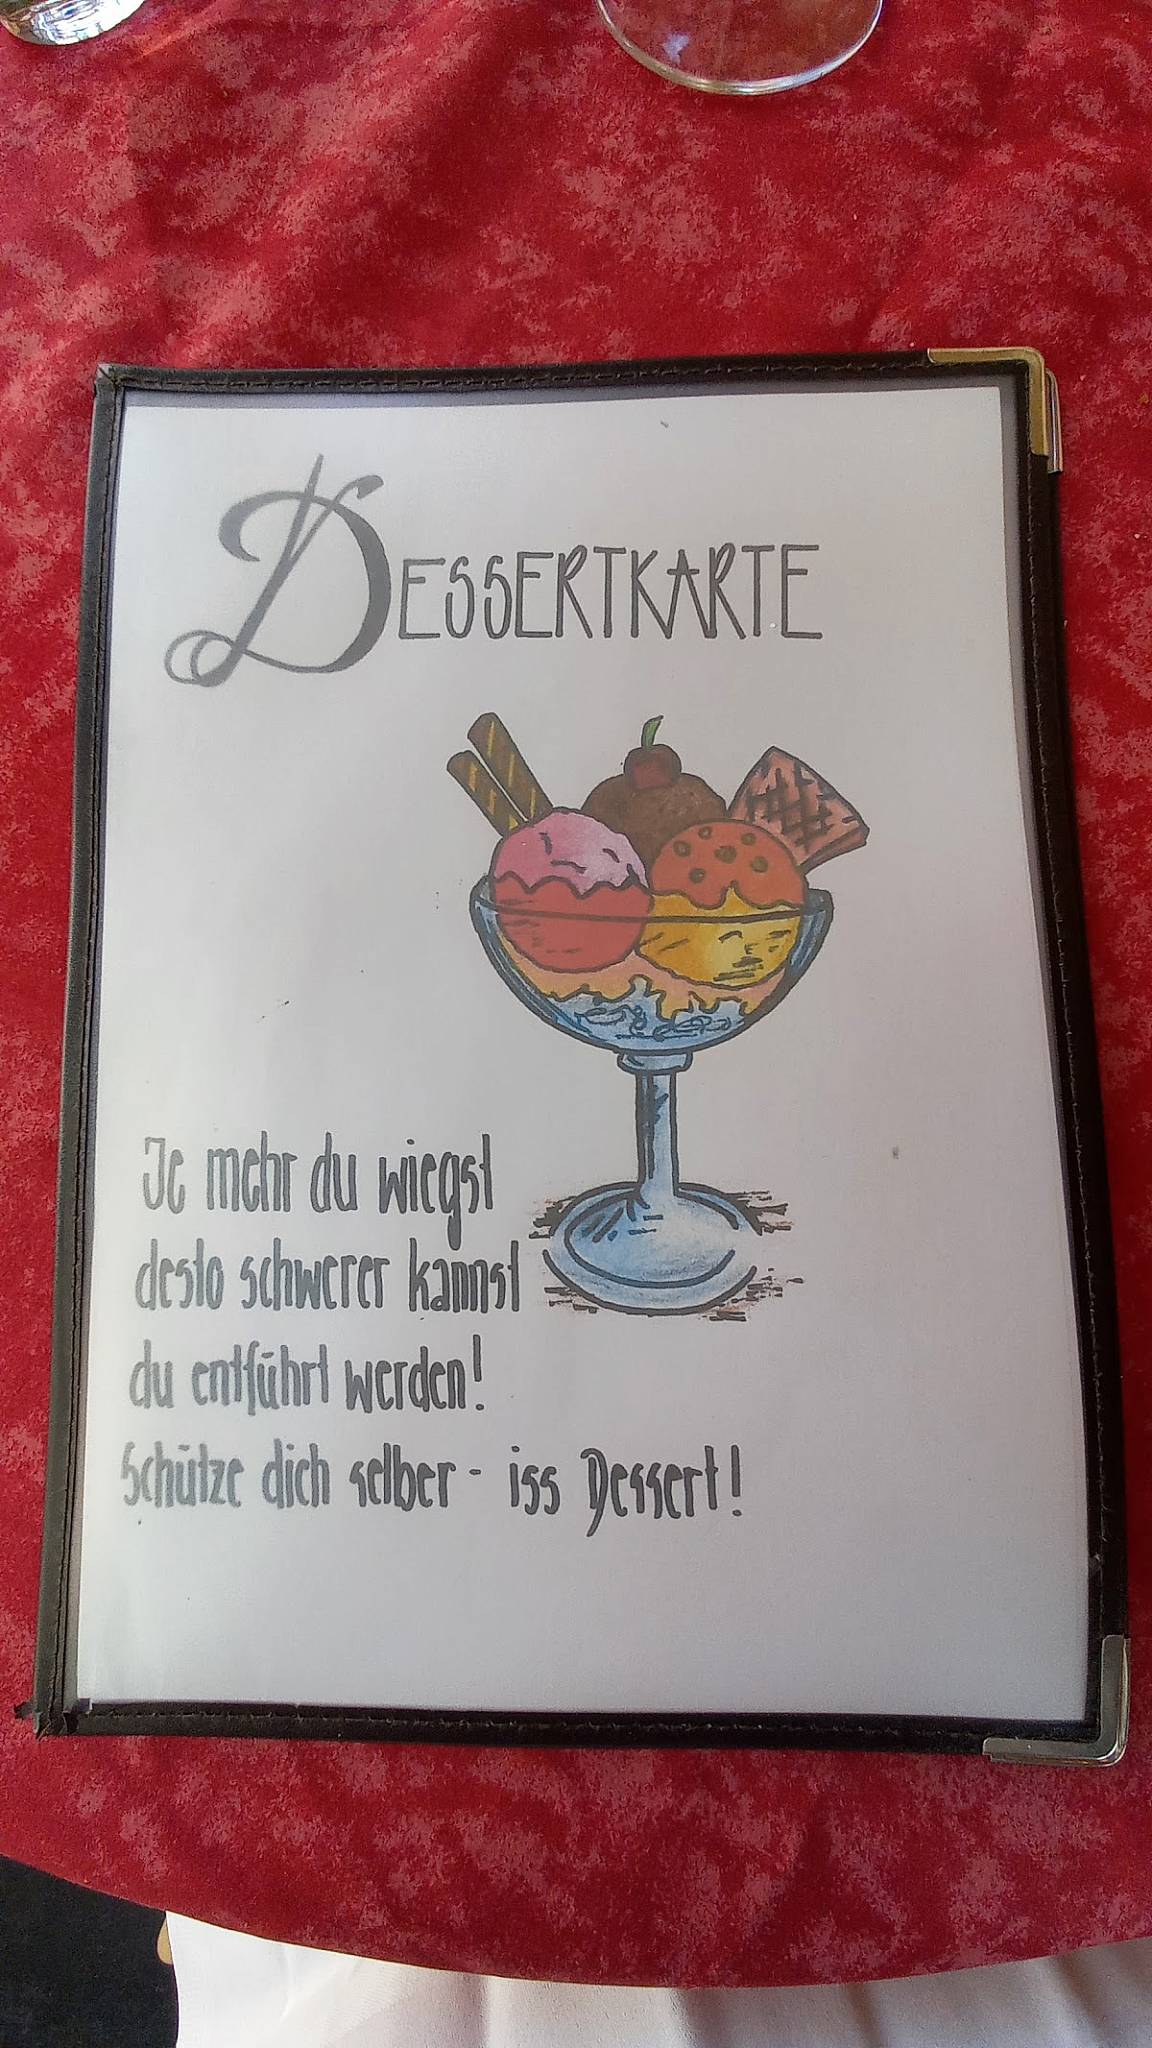 DESSERTKARTE
Je mehr du wiegst
desto schwerer kannst
du entführt werden!
Schütze dich selber - iss Dessert!